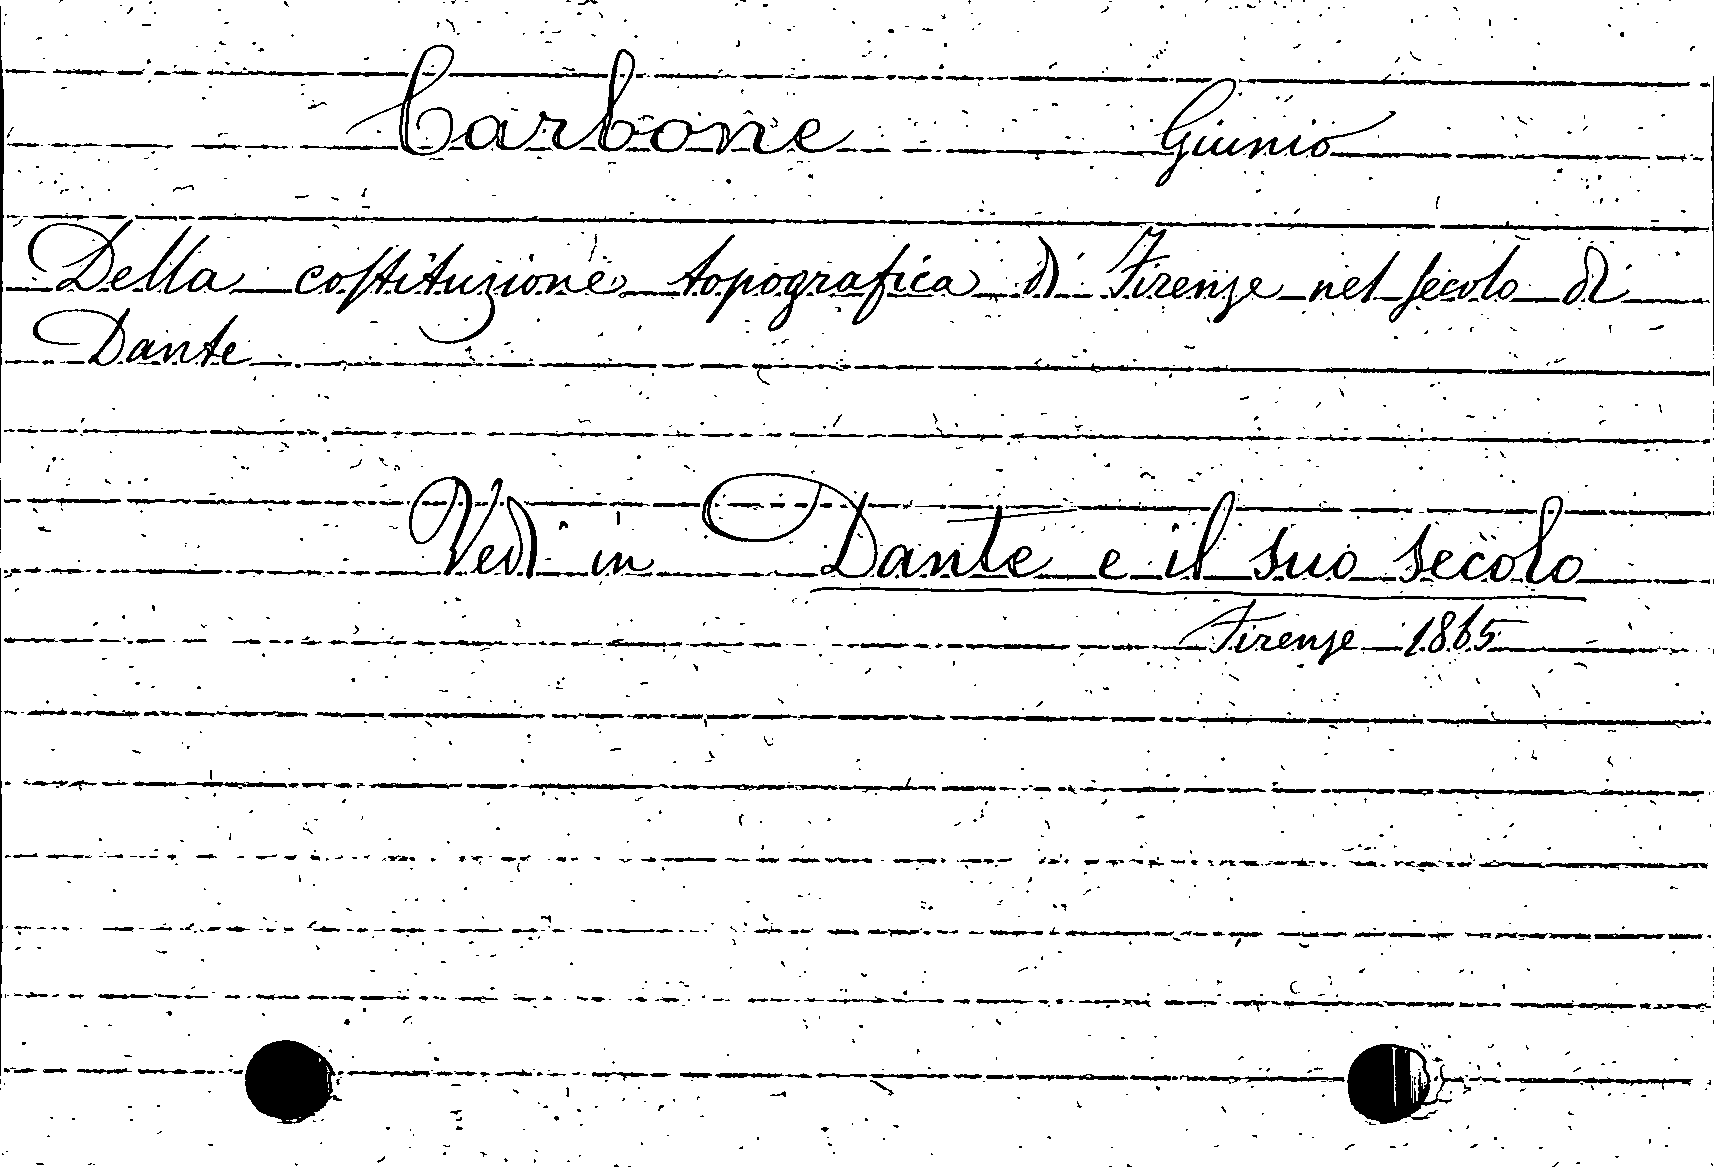 Carbone Giunio
Della costituzione topografica di Firenze nel secolo di
Dante
Vedi in Dante e il suo secolo
Firenze 1865